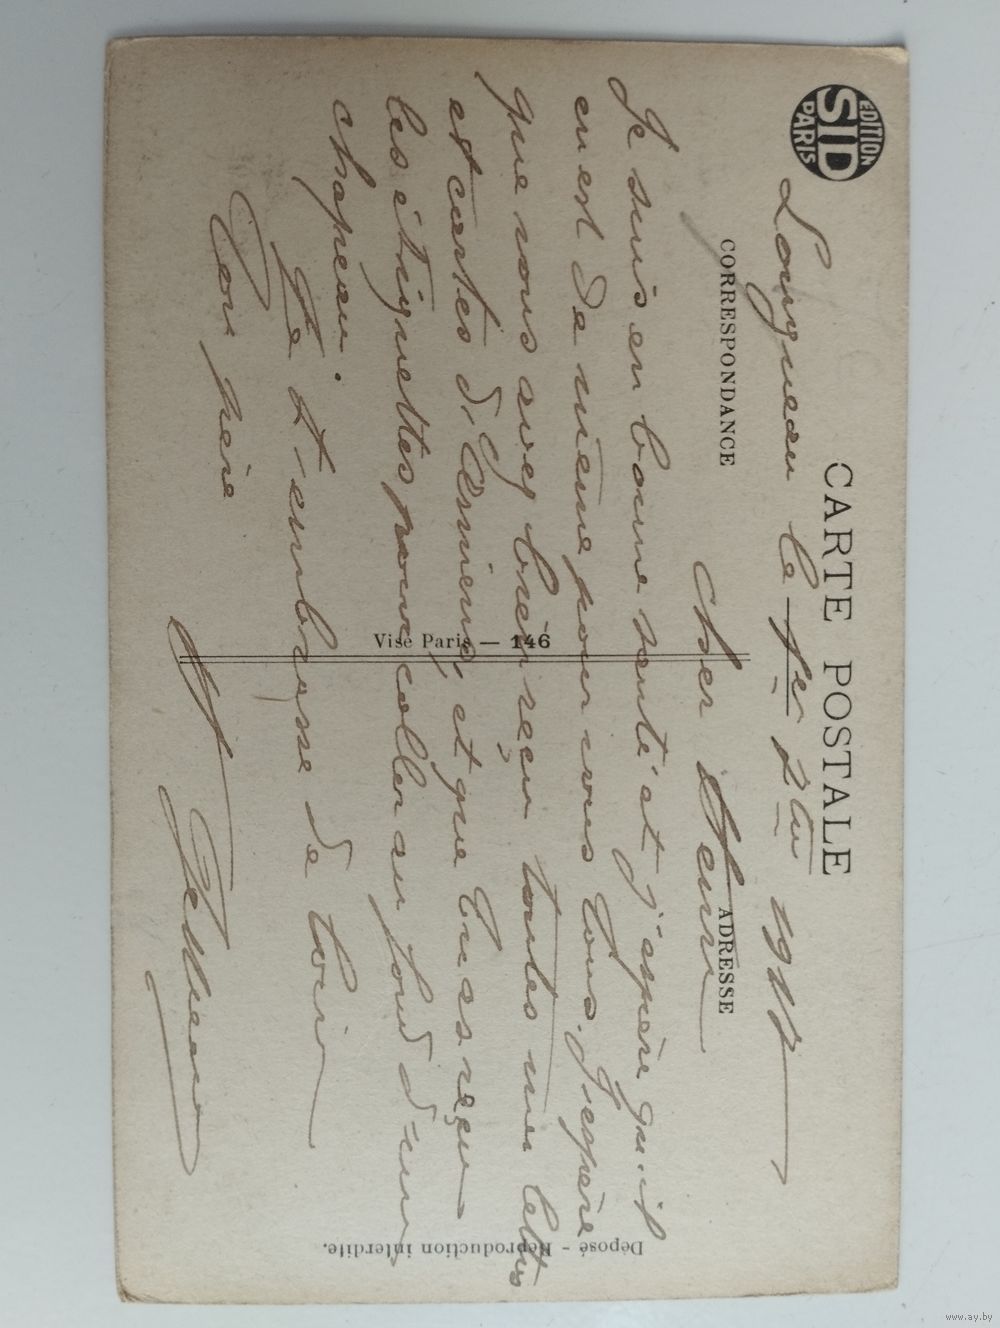 EDITION
SID
PARIS
CARTE POSTALE
CORRESPONDANCE
ADRESSE
Visé Paris — 146
Déposé - Reproduction interdite.
Longueau le 1er 1917
Cher
Je suis en bonne santé et j'espère qu'il
en est de même pour vous tous. J'espère
que vous avez bien reçu toutes mes lettres
et cartes d'Amiens, et que tu as reçu
les étiquettes pour coller au fond d'un
chapeau.
Je t'embrasse de loin
Ton père
www.ay.by